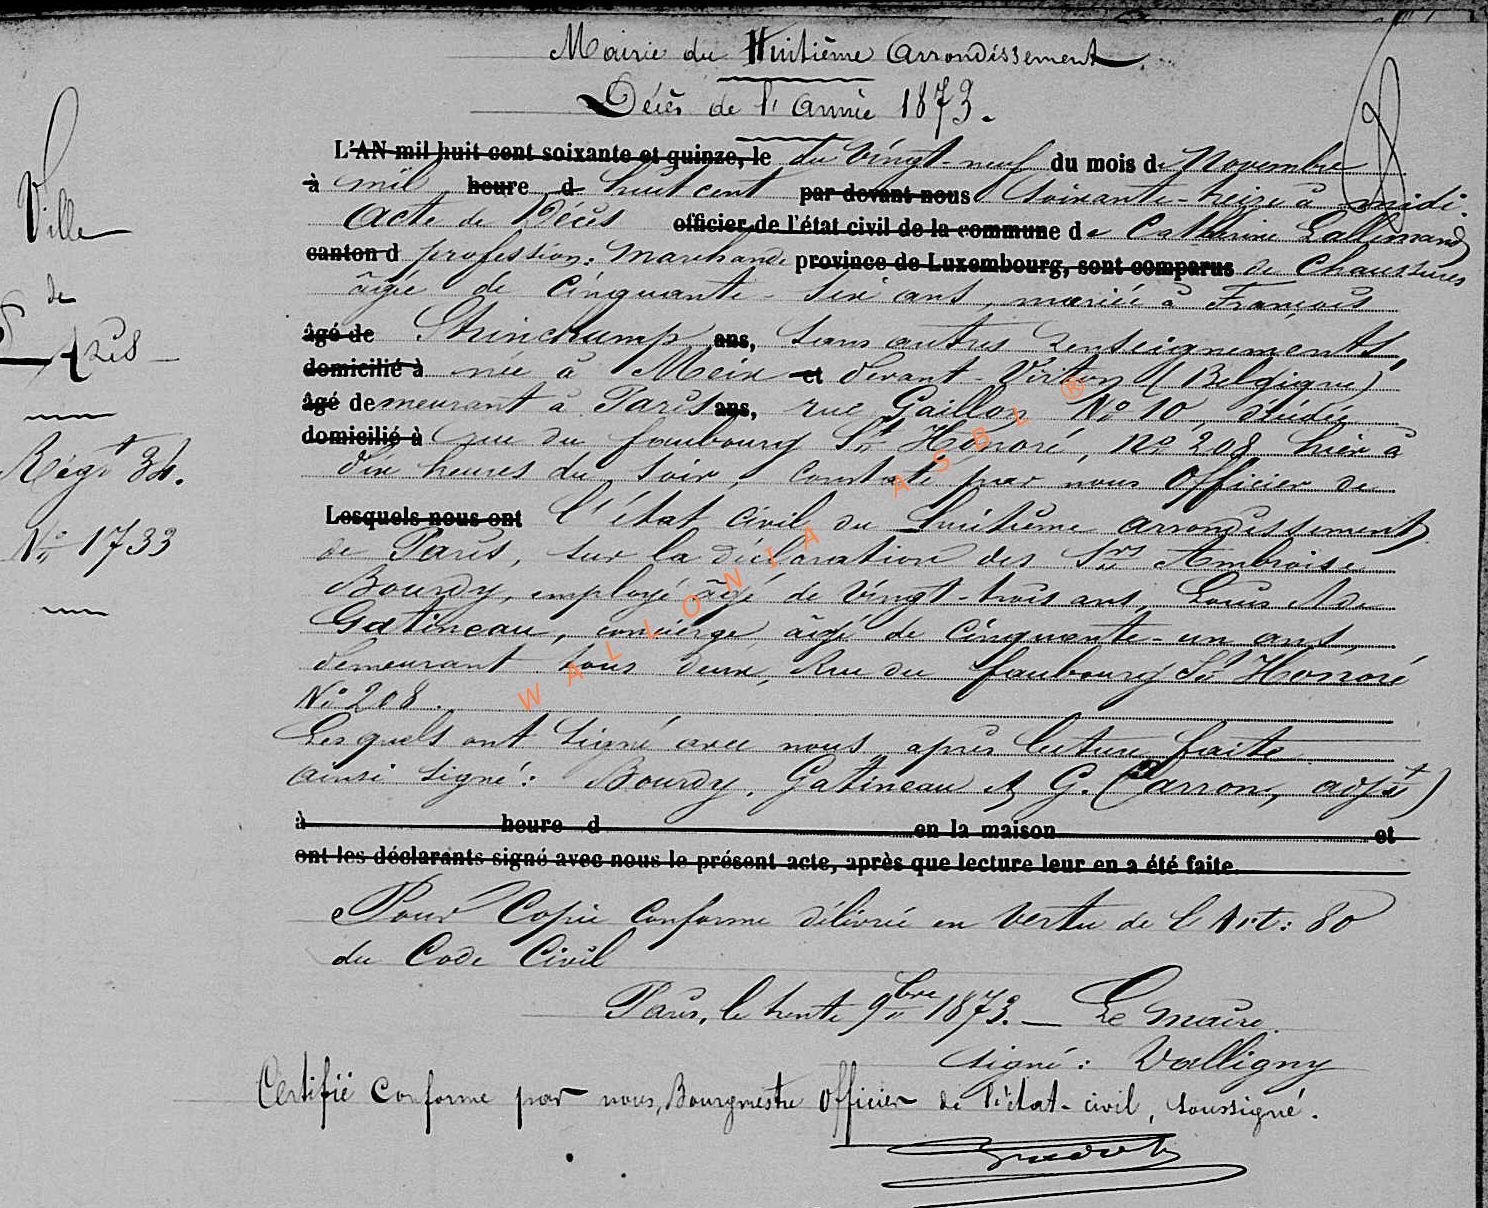 Mairie du Huitième Arrondissement
Décès de l'année 1873.
L'AN mil huit cent soixante et quinze, le du vingt-neuf du mois de Novembre
à mil heure d huit cent par devant nous soixante-treize à midi.
Acte de Décès officier de l'état civil de la commune de Catherine Lallemand
canton d profession: marchande province de Luxembourg, sont comparus de chaussures
âgée de cinquante-six ans, mariée à François
âgé de Strinchamp ans, sans autres renseignements,
domicilié à née à Meix et devant-Virton (Belgique)
âgé demeurant à Paris ans, rue Gaillon No 10, décédée
domicilié à rue du faubourg St Honoré, no 208 hier à
dix heures du soir, constaté par nous Officier de
Lesquels nous ont l'état civil du huitième arrondissement
de Paris, sur la déclaration des Srs Ambroise
Bourdy, employé âgé de vingt-trois ans, Louis
Gatineau, concierge âgé de cinquante-un ans
demeurant tous deux, Rue du faubourg St Honoré
No 208.
Lesquels ont signé avec nous après lecture faite
ainsi signé: Bourdy, Gatineau et G. Carron, adjt)
à heure d en la maison et
ont les déclarants signé avec nous le présent acte, après que lecture leur en a été faite.
Pour Copie Conforme délivrée en vertu de l'Art: 80
du Code Civil
Paris, le trente 9bre 1873. — Le Maire.
signé: Valligny
Certifié conforme par nous, Bourgmestre Officier de l'état-civil, soussigné.
Ville
de
Paris
Regt 34.
No 1733
WALLONIA ASBL ®